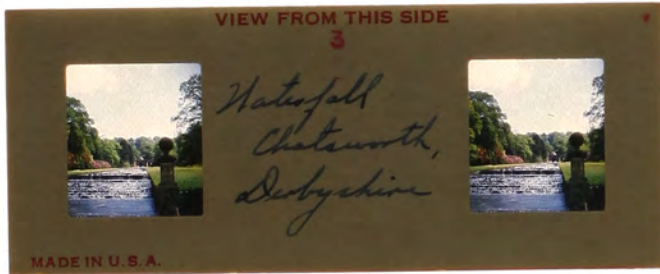 VIEW FROM THIS SIDE
3
Waterfall
Chatsworth,
Derbyshire
MADE IN U.S.A.